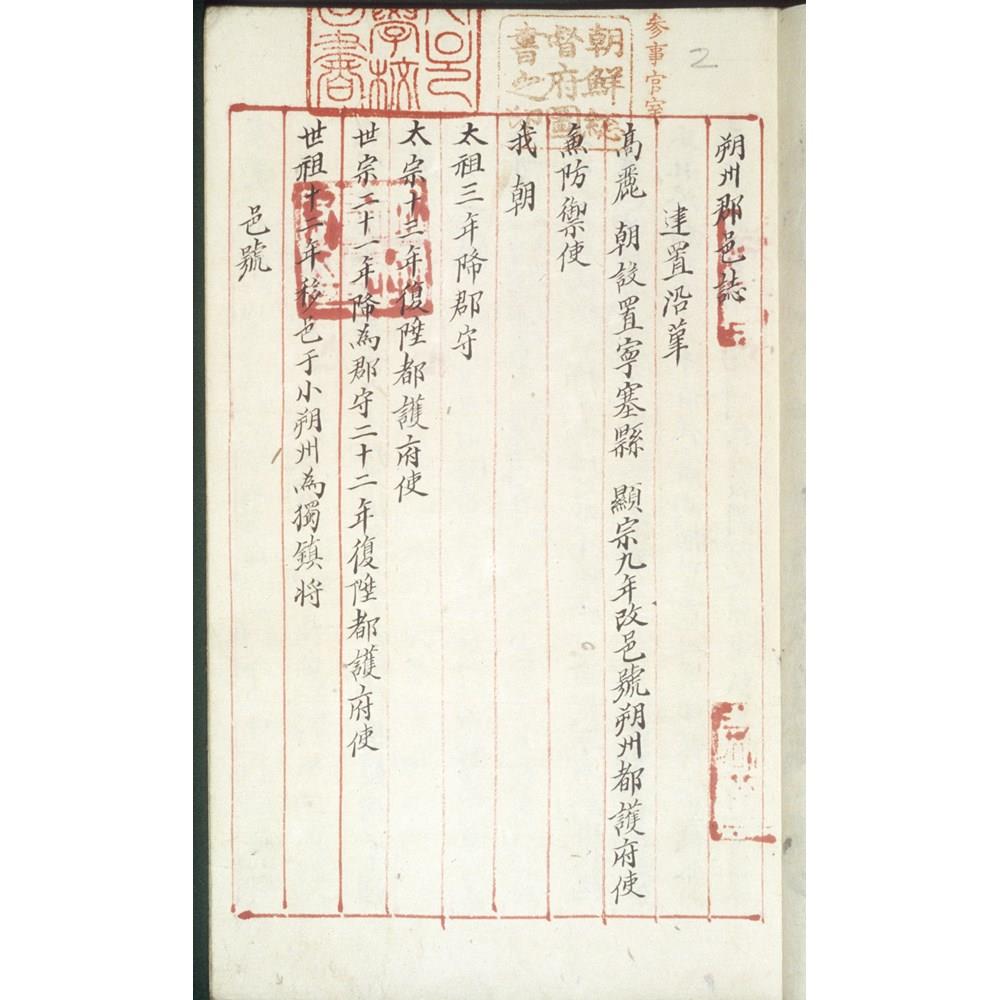 朔州郡邑誌
建置沿革
高麗 朝設置寧塞縣 顯宗九年改邑號朔州都護府使
兼防禦使
我朝
太祖三年降郡守
太宗十三年復陞都護府使
世宗二十一年降為郡守二十二年復陞都護府使
世祖十二年移邑于小朔州為獨鎮将
邑號
參事官室
2
朝鮮總
督府圖
書之印
學校